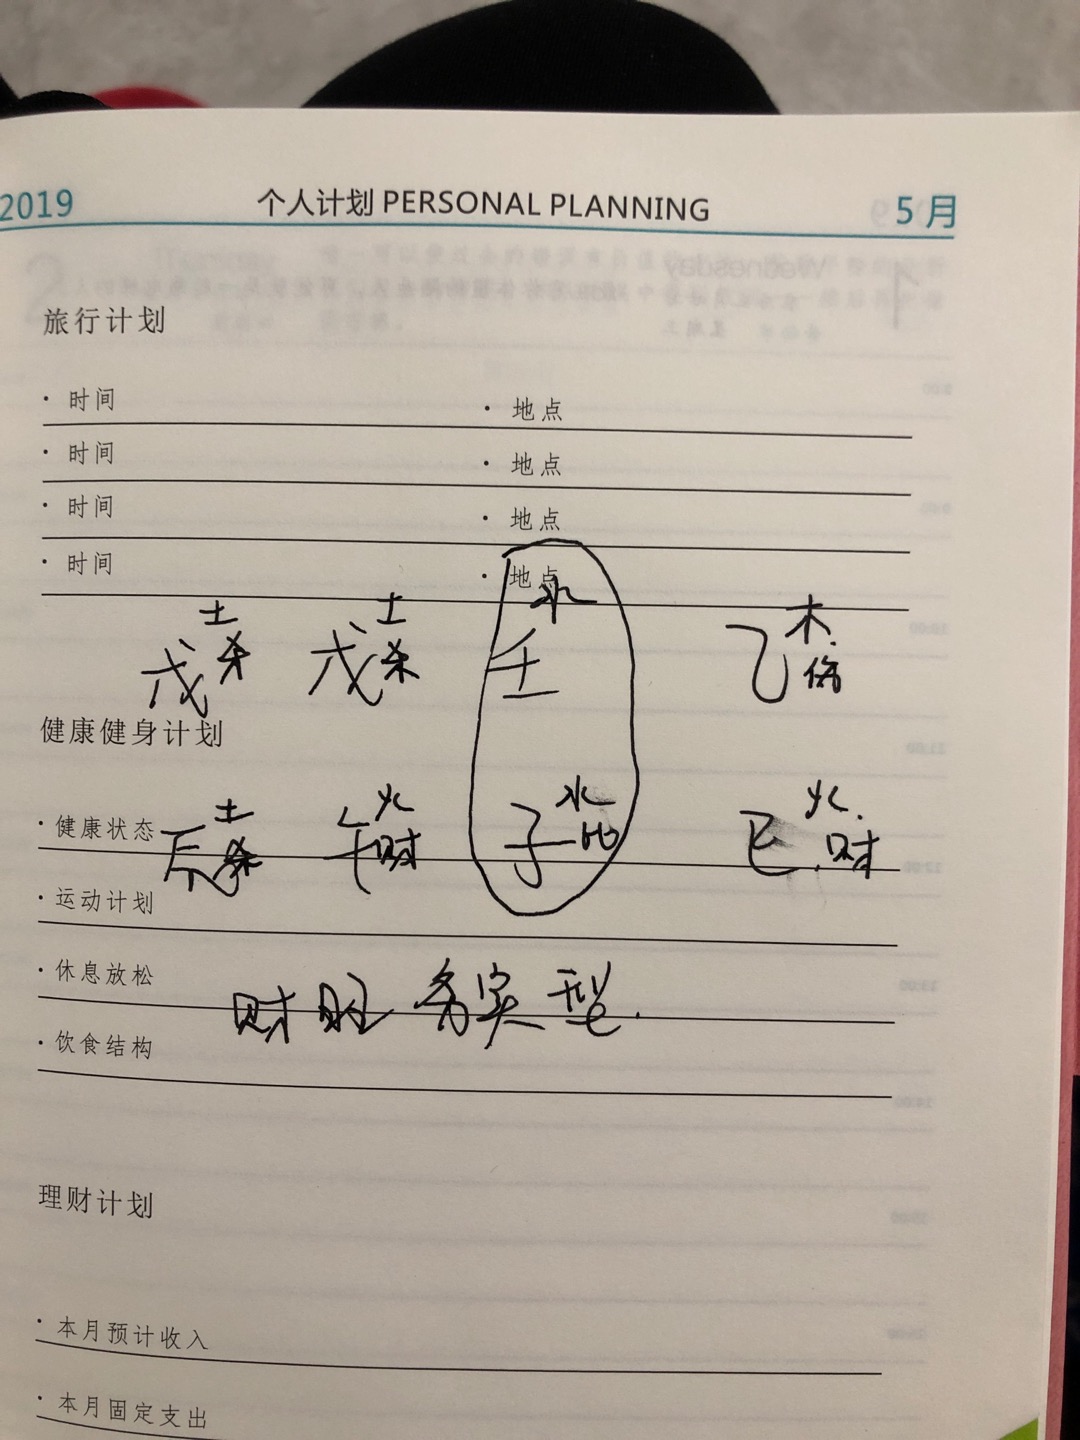 2019 个人计划 PERSONAL PLANNING 5月
旅行计划
· 时间 · 地点
· 时间 · 地点
· 时间 · 地点
· 时间 · 地点
土 土 水 木
戊 杀 戊 杀 壬 乙 伤
健康健身计划
土 火 水 火
· 健康状态 辰 杀 午 财 子 比 巳 财
· 运动计划
· 休息放松
财旺 务实型
· 饮食结构
理财计划
· 本月预计收入
· 本月固定支出